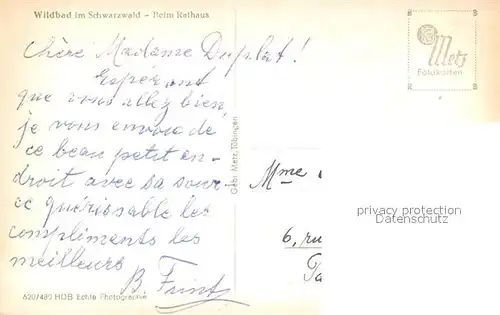 Wildbad im Schwarzwald – Beim Rathaus
Chère Madame Duplat!
Espérant
que vous allez bien,
je vous envoie de
ce beau petit en-
droit avec sa sour-
ce guérissable les
compliments les
meilleurs
B. Frint
6207480 HDB Echte Photographie
Gebr. Metz, Tübingen
Metz
Fotokarten
Mme
6, ru
privacy protection
Datenschutz